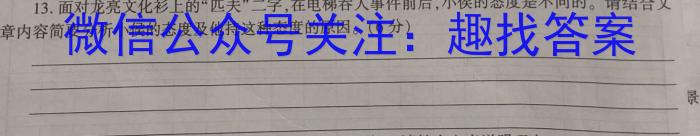 13. 面对龙亮文化衫上的“匹夫”二字,在电梯吞人事件前后,小侯的态度是不同的。请结合文
章内容简要分析小侯的态度及他持这种态度的原因。( 分)
微信公众号关注：趣找答案
景